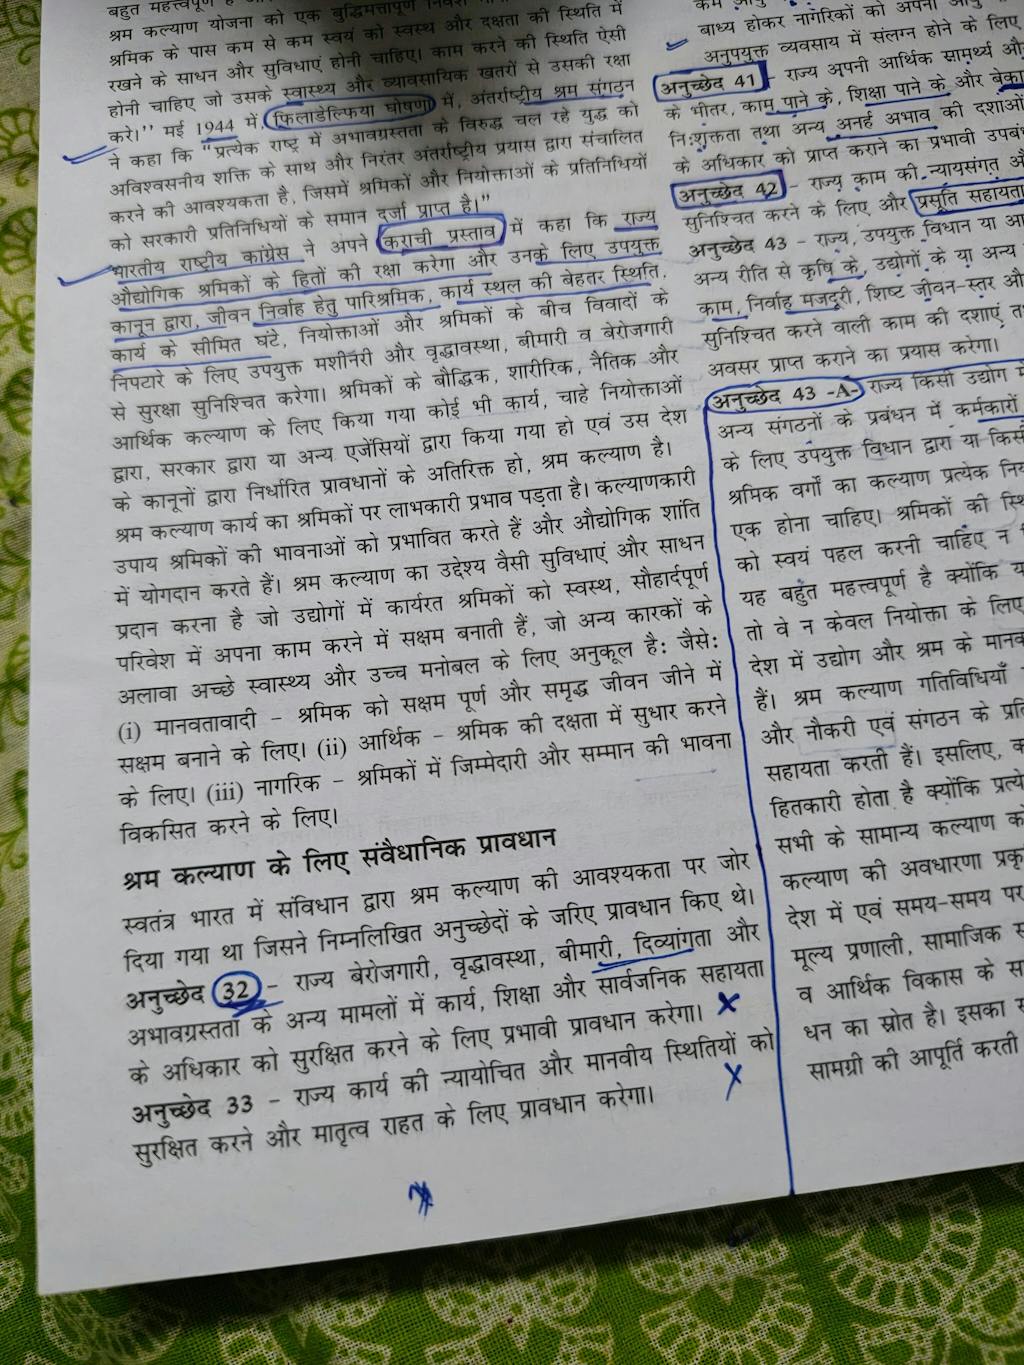 श्रम कल्याण योजना को एक बुद्धिमत्तापूर्ण
श्रमिक के पास कम से कम स्वयं को स्वस्थ और दक्षता की स्थिति में
रखने के साधन और सुविधाएं होनी चाहिए। काम करने की स्थिति ऐसी
होनी चाहिए जो उसके स्वास्थ्य और व्यावसायिक खतरों से उसकी रक्षा
करे।'' मई 1944 में, फिलाडेल्फिया घोषणा में, अंतर्राष्ट्रीय श्रम संगठन
ने कहा कि ''प्रत्येक राष्ट्र में अभावग्रस्तता के विरुद्ध चल रहे युद्ध को
अविश्वसनीय शक्ति के साथ और निरंतर अंतर्राष्ट्रीय प्रयास द्वारा संचालित
करने की आवश्यकता है, जिसमें श्रमिकों और नियोक्ताओं के प्रतिनिधियों
को सरकारी प्रतिनिधियों के समान दर्जा प्राप्त है।''
भारतीय राष्ट्रीय कांग्रेस ने अपने कराची प्रस्ताव में कहा कि राज्य
औद्योगिक श्रमिकों के हितों की रक्षा करेगा और उनके लिए उपयुक्त
कानून द्वारा, जीवन निर्वाह हेतु पारिश्रमिक, कार्य स्थल की बेहतर स्थिति,
कार्य के सीमित घंटे, नियोक्ताओं और श्रमिकों के बीच विवादों के
निपटारे के लिए उपयुक्त मशीनरी और वृद्धावस्था, बीमारी व बेरोजगारी
से सुरक्षा सुनिश्चित करेगा। श्रमिकों के बौद्धिक, शारीरिक, नैतिक और
आर्थिक कल्याण के लिए किया गया कोई भी कार्य, चाहे नियोक्ताओं
द्वारा, सरकार द्वारा या अन्य एजेंसियों द्वारा किया गया हो एवं उस देश
के कानूनों द्वारा निर्धारित प्रावधानों के अतिरिक्त हो, श्रम कल्याण है।
श्रम कल्याण कार्य का श्रमिकों पर लाभकारी प्रभाव पड़ता है। कल्याणकारी
उपाय श्रमिकों की भावनाओं को प्रभावित करते हैं और औद्योगिक शांति
में योगदान करते हैं। श्रम कल्याण का उद्देश्य वैसी सुविधाएं और साधन
प्रदान करना है जो उद्योगों में कार्यरत श्रमिकों को स्वस्थ, सौहार्दपूर्ण
परिवेश में अपना काम करने में सक्षम बनाती हैं, जो अन्य कारकों के
अलावा अच्छे स्वास्थ्य और उच्च मनोबल के लिए अनुकूल है: जैसे:
(i) मानवतावादी – श्रमिक को सक्षम पूर्ण और समृद्ध जीवन जीने में
सक्षम बनाने के लिए। (ii) आर्थिक – श्रमिक की दक्षता में सुधार करने
के लिए। (iii) नागरिक – श्रमिकों में जिम्मेदारी और सम्मान की भावना
विकसित करने के लिए।
श्रम कल्याण के लिए संवैधानिक प्रावधान
स्वतंत्र भारत में संविधान द्वारा श्रम कल्याण की आवश्यकता पर जोर
दिया गया था जिसने निम्नलिखित अनुच्छेदों के जरिए प्रावधान किए थे।
अनुच्छेद 32 – राज्य बेरोजगारी, वृद्धावस्था, बीमारी, दिव्यांगता और
अभावग्रस्तता के अन्य मामलों में कार्य, शिक्षा और सार्वजनिक सहायता
के अधिकार को सुरक्षित करने के लिए प्रभावी प्रावधान करेगा।
अनुच्छेद 33 – राज्य कार्य की न्यायोचित और मानवीय स्थितियों को
सुरक्षित करने और मातृत्व राहत के लिए प्रावधान करेगा।
बाध्य होकर नागरिकों को अपनी
अनुपयुक्त व्यवसाय में संलग्न होने के लिए
अनुच्छेद 41 – राज्य अपनी आर्थिक सामर्थ्य
के भीतर, काम पाने के, शिक्षा पाने के और
नि:शुक्तता तथा अन्य अनर्ह अभाव की दशाओं
के अधिकार को प्राप्त कराने का प्रभावी
अनुच्छेद 42 – राज्य काम की न्यायसंगत
सुनिश्चित करने के लिए और प्रसूति सहायता
अनुच्छेद 43 – राज्य, उपयुक्त विधान या
अन्य रीति से कृषि के, उद्योगों के या अन्य
काम, निर्वाह मजदूरी, शिष्ट जीवन-स्तर
सुनिश्चित करने वाली काम की दशाएं
अवसर प्राप्त कराने का प्रयास करेगा।
अनुच्छेद 43 -A- राज्य किसी उद्योग
अन्य संगठनों के प्रबंधन में कर्मकारों
के लिए उपयुक्त विधान द्वारा या
श्रमिक वर्गों का कल्याण प्रत्येक
एक होना चाहिए। श्रमिकों की
को स्वयं पहल करनी चाहिए न
यह बहुत महत्त्वपूर्ण है क्योंकि
तो वे न केवल नियोक्ता के लिए
देश में उद्योग और श्रम के
हैं। श्रम कल्याण गतिविधियाँ
और नौकरी एवं संगठन के
सहायता करती हैं। इसलिए,
हितकारी होता है क्योंकि
सभी के सामान्य कल्याण
कल्याण की अवधारणा
देश में एवं समय-समय पर
मूल्य प्रणाली, सामाजिक
व आर्थिक विकास के
धन का स्रोत है। इसका
सामग्री की आपूर्ति करती